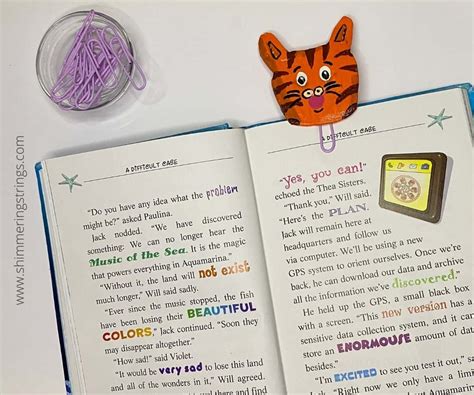 www.shimmeringstrings.com
A DIFFICULT CASE
"Do you have any idea what the problem
might be?" asked Paulina.
Jack nodded. "We have discovered
something: We can no longer hear the
Music of the Sea. It is the magic
that powers everything in Aquamarina."
"Without it, the land will not exist
much longer," Will said sadly.
"Ever since the music stopped, the fish
have been losing their BEAUTIFUL
COLORS," Jack continued. "Soon they
may disappear altogether."
"How sad!" said Violet.
"It would be very sad to lose this land
and all of the wonders in it," Will agreed.
A DIFFICULT CASE
"Yes, you can!"
echoed the Thea Sisters.
"Thank you," Will said.
"Here's the PLAN.
Jack will remain here at
headquarters and follow us
via computer. We'll be using a new
GPS system to orient ourselves. Once we're
back, he can download our data and archive
all the information we've discovered."
He held up the GPS, a small black box
with a screen. "This new version has a
sensitive data collection system, and it can
store an ENORMOUS amount of
"I'm EXCITED to see you test it out,"
"Right now we only have a